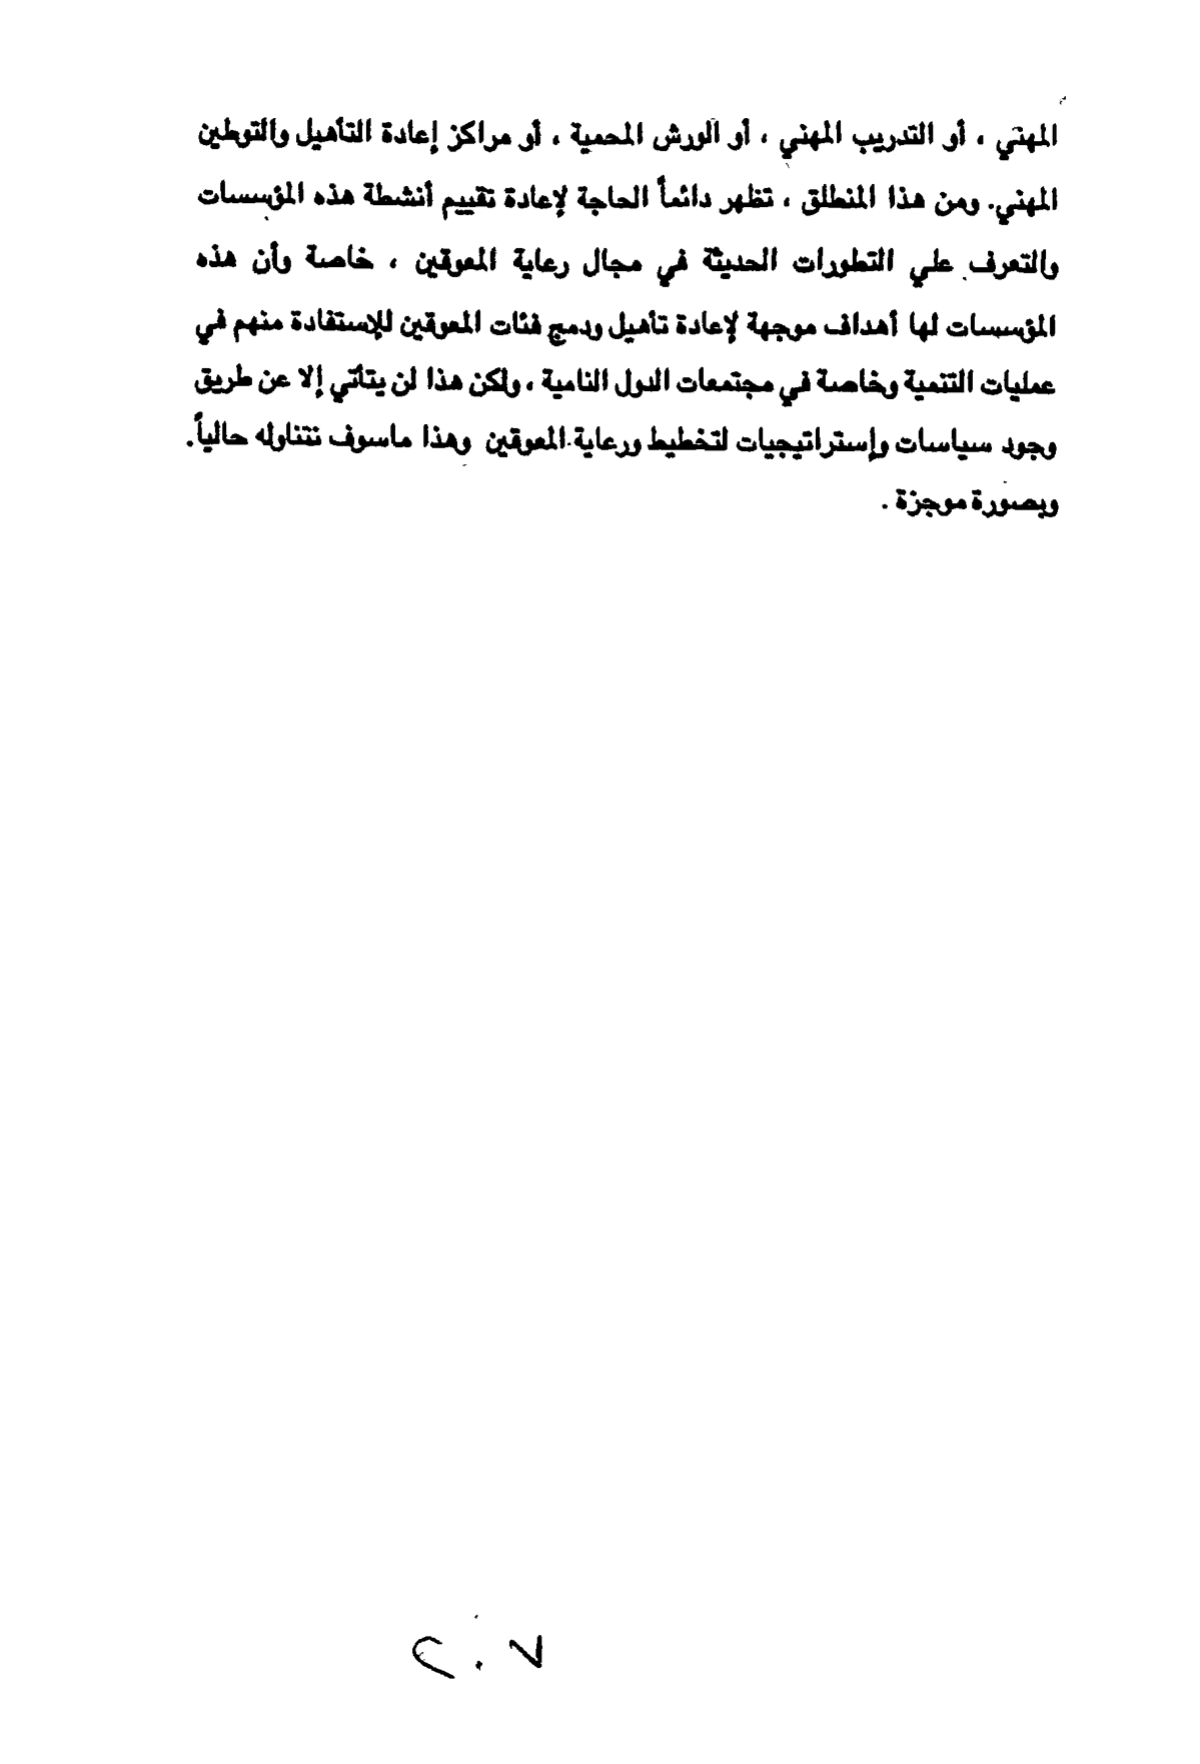 المهني ، أو التدريب المهني ، أو الورش المحمية ، أو مراكز إعادة التأهيل والتوطين
المهني. ومن هذا المنطلق ، تظهر دائماً الحاجة لإعادة تقييم أنشطة هذه المؤسسات
والتعرف علي التطورات الحديثة في مجال رعاية المعوقين ، خاصة وأن هذه
المؤسسات لها أهداف موجهة لإعادة تأهيل ودمج فئات المعوقين للإستفادة منهم في
عمليات التنمية وخاصة في مجتمعات الدول النامية ، ولكن هذا لن يتأتي إلا عن طريق
وجود سياسات وإستراتيجيات لتخطيط ورعاية المعوقين وهذا ماسوف نتناوله حالياً.
وبصورة موجزة .